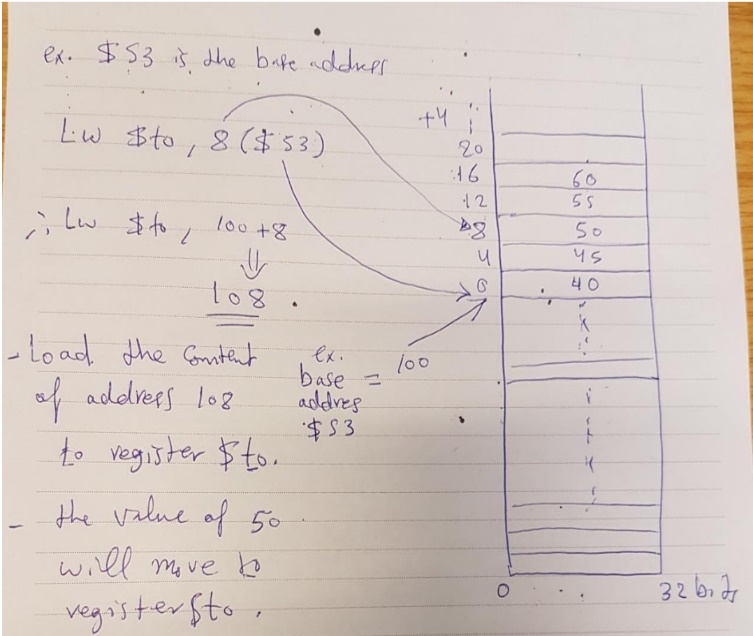 ex. $S3 is the base address
Lw $to, 8($S3)
∴ Lw $to, 100+8
⇓
108.
- Load the Content
of address 108
to register $to.
- the value of 50
will move to
register $to.
ex.
base = 100
addres
$S3
+4
20
16 60
12 55
8 50
4 45
0 40
0 32 bits